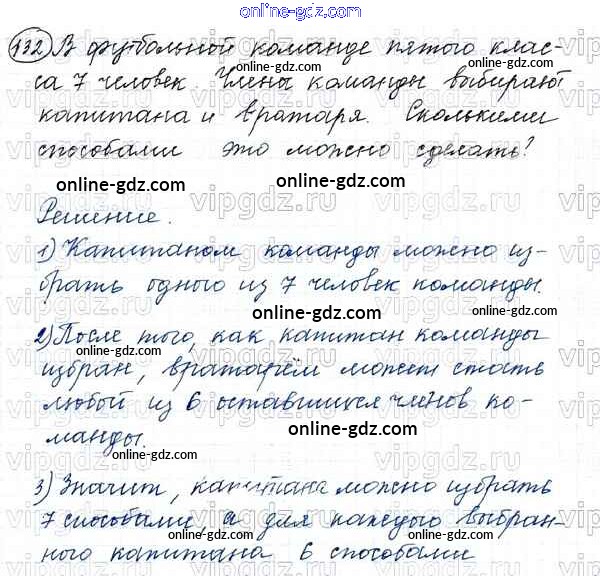 online-gdz.com
132 В футбольной команде пятого клас-
са 7 человек. Члены команды выбирают
капитана и вратаря. Сколькими
способами это можно сделать?
online-gdz.com online-gdz.com
vipgdz.ru vipgdz.ru vipgdz.ru
Решение.
online-gdz.com
1) Капитаном команды можно из-
брать одного из 7 человек команды.
online-gdz.com
2) После того, как капитан команды
online-gdz.com online-gdz.com
избран, вратарём может стать
любой из 6 оставшихся членов ко-
online-gdz.com
манды.
online-gdz.com
3) Значит, капитана можно избрать
7 способами, а для каждого выбран-
online-gdz.com online-gdz.com
ного капитана 6 способами